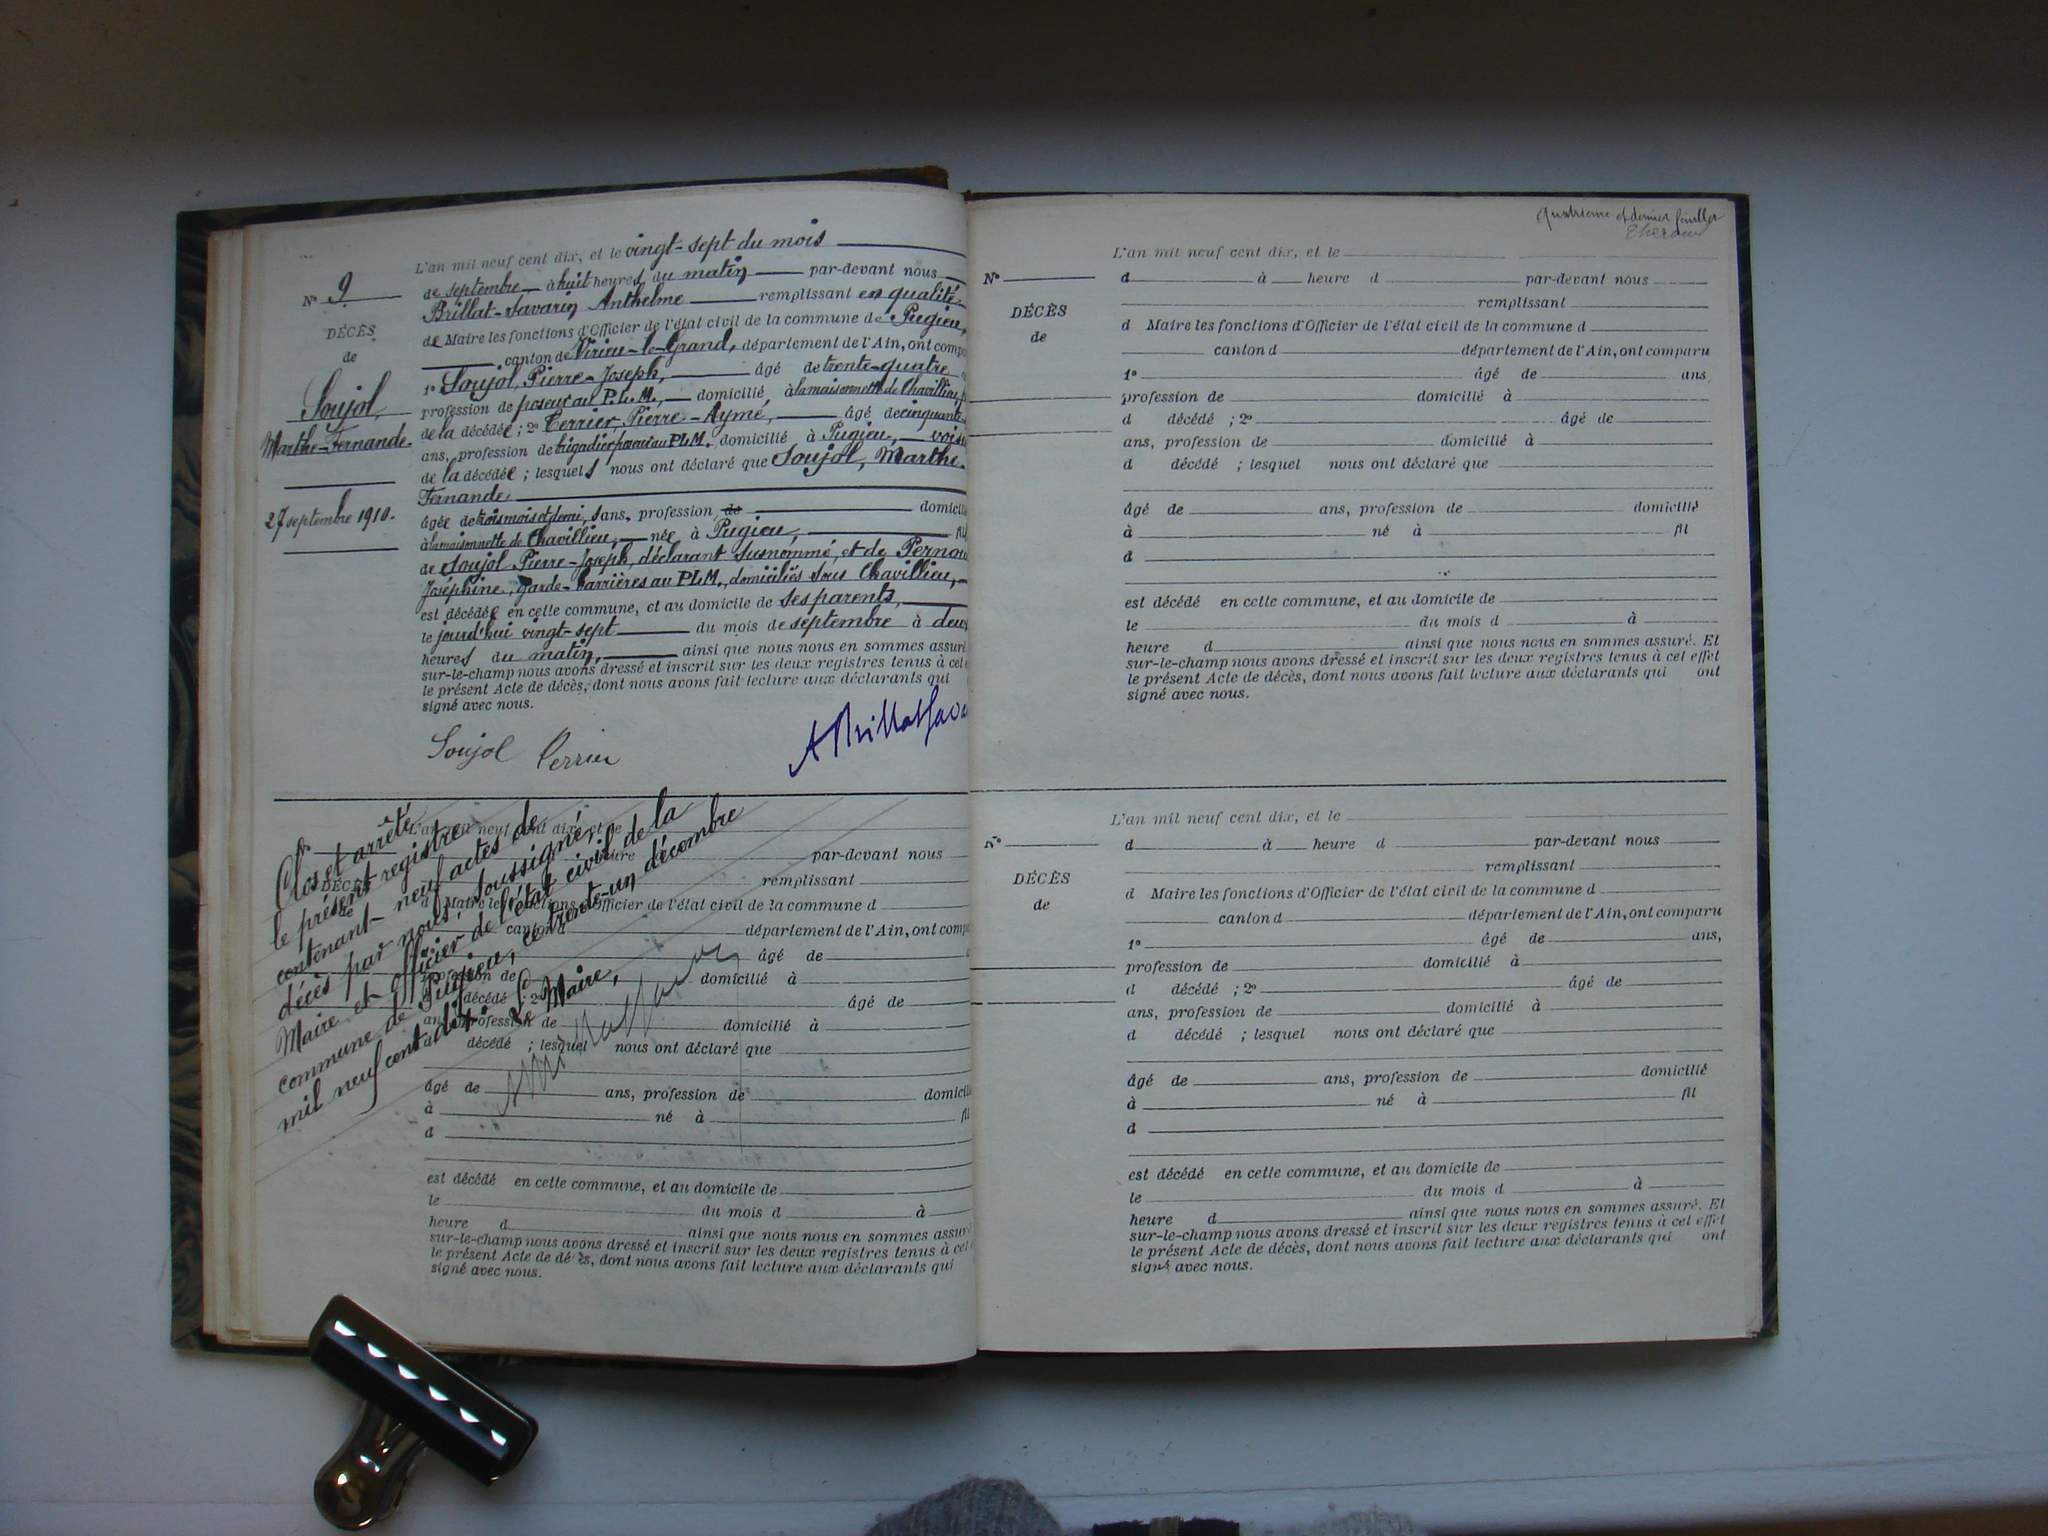 L'an mil neuf cent dix, et le vingt-sept du mois
N° 9
de septembre à huit heures du matin par-devant nous
Brillat-Savarin Anthelme remplissant en qualité
DÉCÈS
de Maire les fonctions d'Officier de l'état civil de la commune de Pugieu,
de
canton de Virieu-le-Grand, département de l'Ain, ont compa
1° Soujol, Pierre-Joseph, âgé de trente-quatre
Soujol,
profession de poseur au P.L.M., domicilié à la maisonnette de Chavillieu,
de la décédée ; 2° Perrier Pierre-Aymé, âgé de cinquante-
Marthe-Fernande.
ans, profession de brigadier poseur au PLM. domicilié à Pugieu, voisi
de la décédée ; lesquels nous ont déclaré que Soujol, Marthe-
Fernande,
27 septembre 1910.
âgée de trois mois et demi, sans profession, de domicili
à la maisonnette de Chavillieu, née à Pugieu, fil
de Soujol Pierre-Joseph, déclarant susnommé, et de Pernou
Joséphine, garde-barrières au PLM., domiciliés sous Chavillieu,
est décédée en cette commune, et au domicile de ses parents,
le jourd'hui vingt-sept du mois de septembre à deux
heures du matin, ainsi que nous nous en sommes assuré
sur-le-champ nous avons dressé et inscrit sur les deux registres tenus à cet e
le présent Acte de décès, dont nous avons fait lecture aux déclarants qui
signé avec nous.
Soujol Perrier
A Brillat Sava
L'an mil neuf cent dix, et le
heure par-devant nous
DÉCÈS
remplissant
de
d Maire les fonctions d'Officier de l'état civil de la commune d
canton d département de l'Ain, ont compa
âgé de
profession de domicilié à
décédé ; 2° âgé de
ans, profession de domicilié à
d décédé ; lesquel nous ont déclaré que
âgé de ans, profession de domicilié
à né à fil
d
est décédé en cette commune, et au domicile de
le du mois d à
heure d ainsi que nous nous en sommes assuré
sur-le-champ nous avons dressé et inscrit sur les deux registres tenus à cet
le présent Acte de décès, dont nous avons fait lecture aux déclarants qui
signé avec nous.
Clos et arrêté
le présent registre
contenant neuf actes de
décès par nous, soussigné,
Maire et officier de l'état civil de la
commune de Pugieu, ce trente-un décembre
mil neuf cent dix. Le Maire,
quatrième et dernier feuillet
L'an mil neuf cent dix, et le
N° d à heure d par-devant nous
remplissant
DÉCÈS
d Maire les fonctions d'Officier de l'état civil de la commune d
de
canton d département de l'Ain, ont comparu
1° âgé de ans,
profession de domicilié à
d décédé ; 2° âgé de
ans, profession de domicilié à
d décédé ; lesquel nous ont déclaré que
âgé de ans, profession de domicilié
à né à fil
d
est décédé en cette commune, et au domicile de
le du mois d à
heure d ainsi que nous nous en sommes assuré. Et
sur-le-champ nous avons dressé et inscrit sur les deux registres tenus à cet effet
le présent Acte de décès, dont nous avons fait lecture aux déclarants qui ont
signé avec nous.
L'an mil neuf cent dix, et le
N° d à heure d par-devant nous
remplissant
DÉCÈS
d Maire les fonctions d'Officier de l'état civil de la commune d
de
canton d département de l'Ain, ont comparu
1° âgé de ans,
profession de domicilié à
d décédé ; 2° âgé de
ans, profession de domicilié à
d décédé ; lesquel nous ont déclaré que
âgé de ans, profession de domicilié
à né à fil
d
est décédé en cette commune, et au domicile de
le du mois d à
heure d ainsi que nous nous en sommes assuré. Et
sur-le-champ nous avons dressé et inscrit sur les deux registres tenus à cet effet
le présent Acte de décès, dont nous avons fait lecture aux déclarants qui ont
signé avec nous.